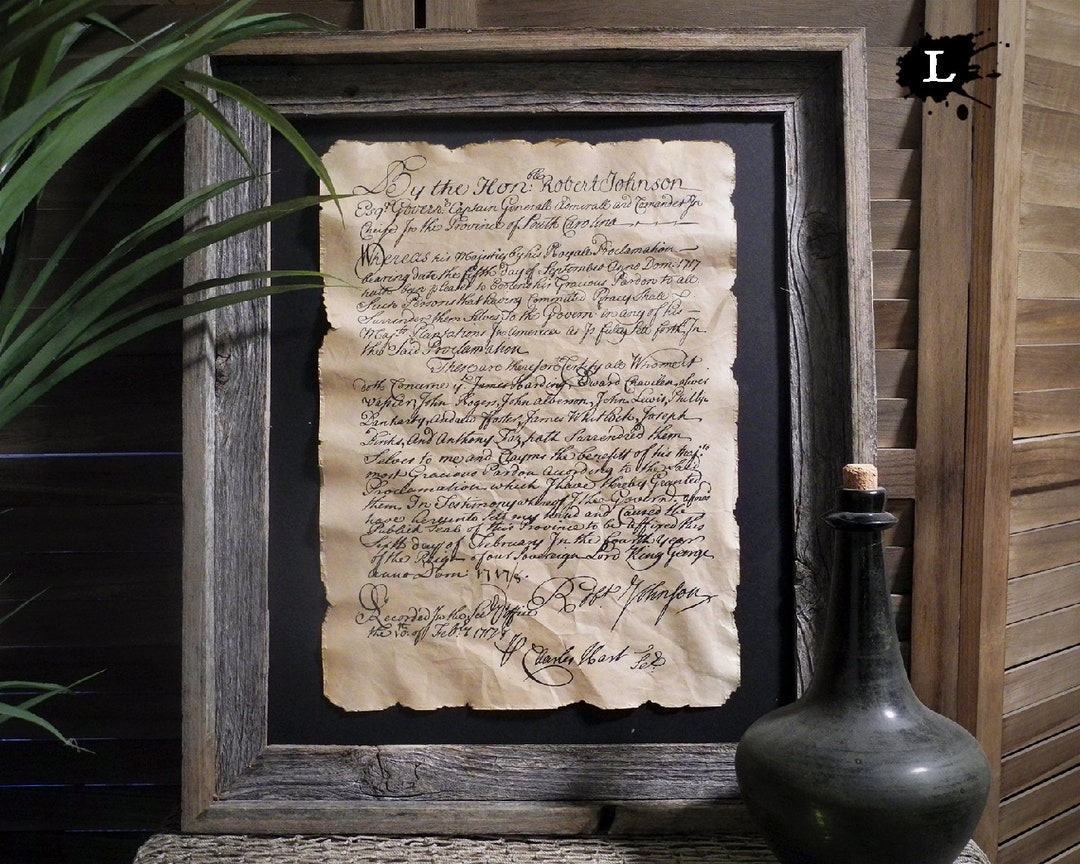 L
By the Hon:ble Robert Johnson
Esqr Governr Captain Generall Admirall and Comander In
Cheife In the Province of South Carolina
Whereas his Majesty by his Royall Proclamation
bearing date the fifth Day of September Anno Dom: 1717
hath been pleas'd to Extend his Gracious Pardon to all
Such Persons that having Committed Pyracy Shall
Surrender them Selves To the Governr in any of his
Majtys Plantations In America as Is fully Sett forth In
the Said Proclamation
These are therefore to Certify all Whome It
doth Concerne yt James Harding, Edward Oliver
John Rogers, John Alberson, John Lewis, Phillip
Andrew Foster, James Whitlock, Joseph
And Anthony Surrendred them
Selves to me and Clayms the benefitt of his Majtys
most Gracious Pardon according to the Said
Proclamation which I have hereby Granted
them In Testimony whereof I the Governr afores
have hereunto Sett my hand and Caused the
Publick Seal of this Province to be affixed this
Sixth day of February In the fourth Year
of the Reign of our Sovereign Lord King George
Anno Dom: 1717/8.
Robt Johnson
Recorded In the Office
the of Febry 1717/8
Charles Hart